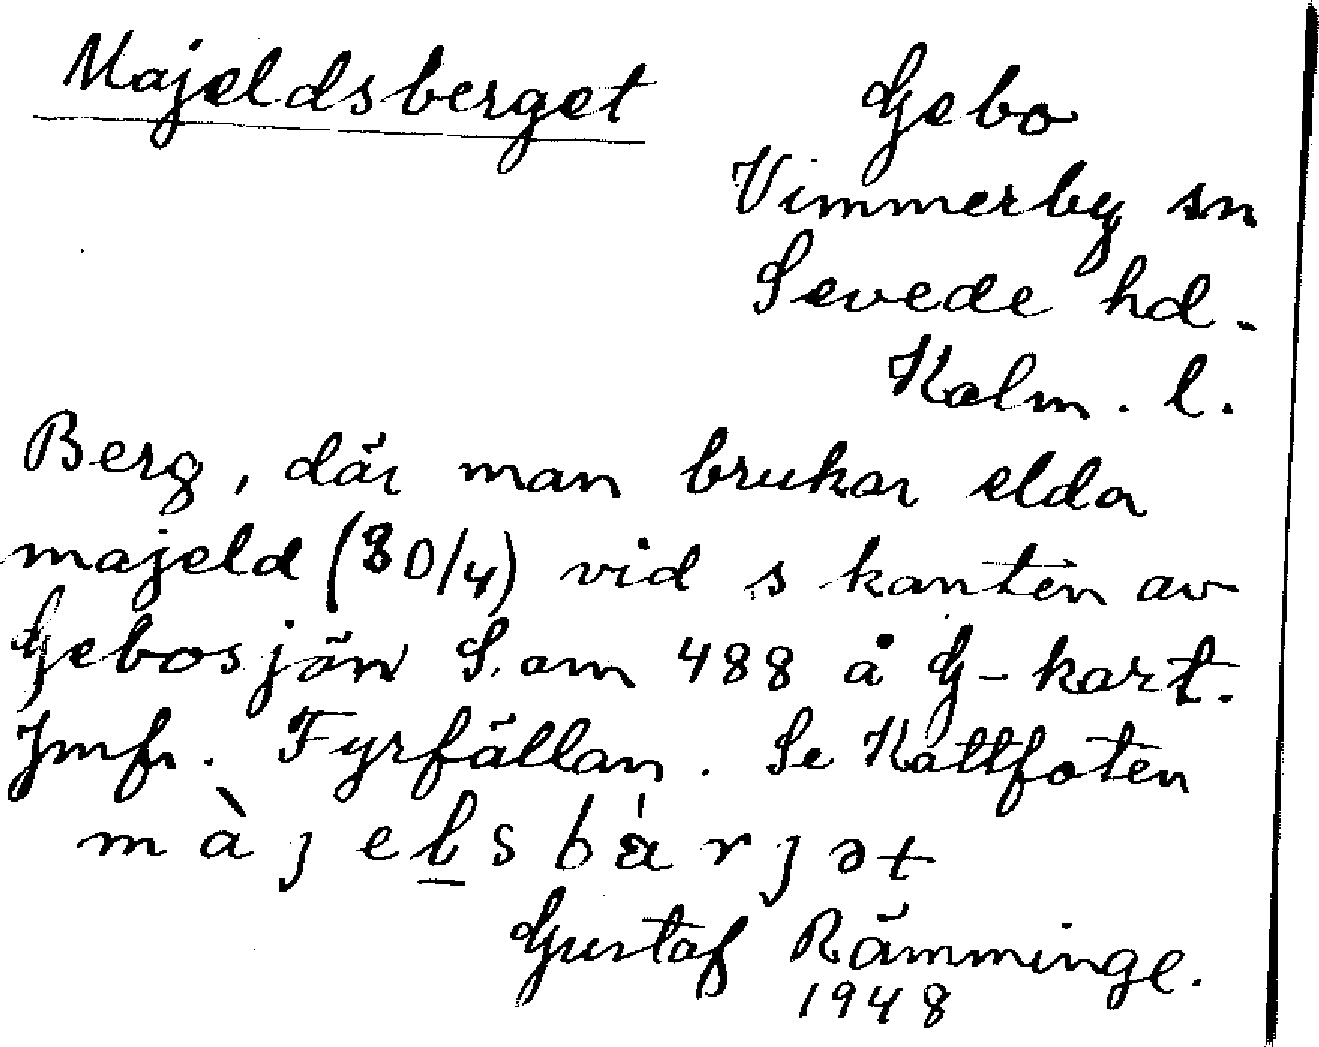 Majeldsberget
Gebo
Vimmerby sn
Sevede hd.
Kalm. l.
Berg, där man brukar elda
majeld (30/4) vid s kanten av
Gebosjön S. om 488 å G-kart.
Jmfr. Fyrfällan. Se Kattfoten
Gustaf Rämminge.
1948